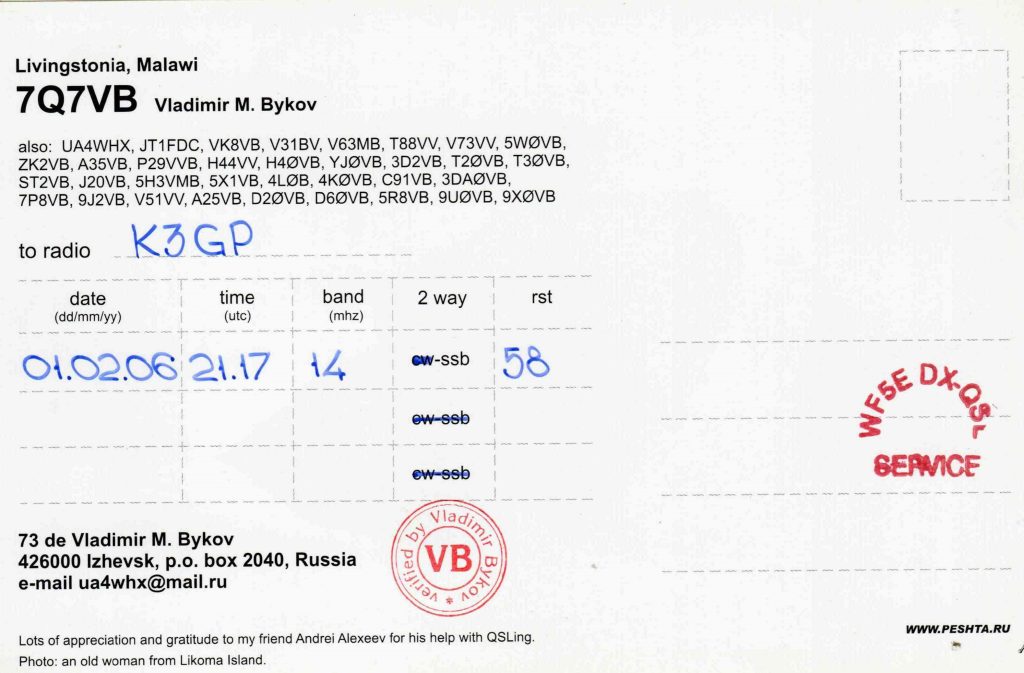 Livingstonia, Malawi
7Q7VB Vladimir M. Bykov
also: UA4WHX, JT1FDC, VK8VB, V31BV, V63MB, T88VV, V73VV, 5WØVB,
ZK2VB, A35VB, P29VVB, H44VV, H4ØVB, YJØVB, 3D2VB, T2ØVB, T3ØVB,
ST2VB, J20VB, 5H3VMB, 5X1VB, 4LØB, 4KØVB, C91VB, 3DAØVB,
7P8VB, 9J2VB, V51VV, A25VB, D2ØVB, D6ØVB, 5R8VB, 9UØVB, 9XØVB
to radio K3GP
date time band 2 way rst
(dd/mm/yy) (utc) (mhz)
01.02.06 21.17 14 cw-ssb 58
cw-ssb
cw-ssb
WF5E DX-QSL
SERVICE
73 de Vladimir M. Bykov
426000 Izhevsk, p.o. box 2040, Russia
e-mail ua4whx@mail.ru
verified by Vladimir Bykov *
VB
WWW.PESHTA.RU
Lots of appreciation and gratitude to my friend Andrei Alexeev for his help with QSLing.
Photo: an old woman from Likoma Island.